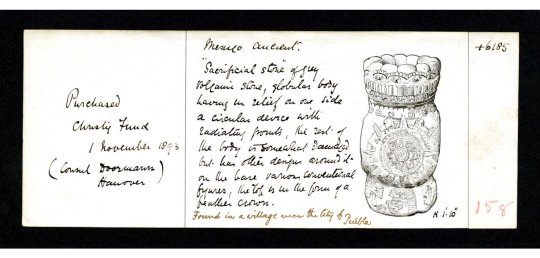 Purchased
Christy Fund
1 November 1893
(Consul Doormann)
Hanover
Mexico Ancient.
"Sacrificial stone" of grey
volcanic stone, globular body
having in relief on one side
a circular device with
radiating points, the rest of
the body is somewhat damaged
but has other designs around it -
on the base various conventional
figures, the top is in the form of a
feather crown.
Found in a village near the City of Puebla
H 1.10"
+6185
158